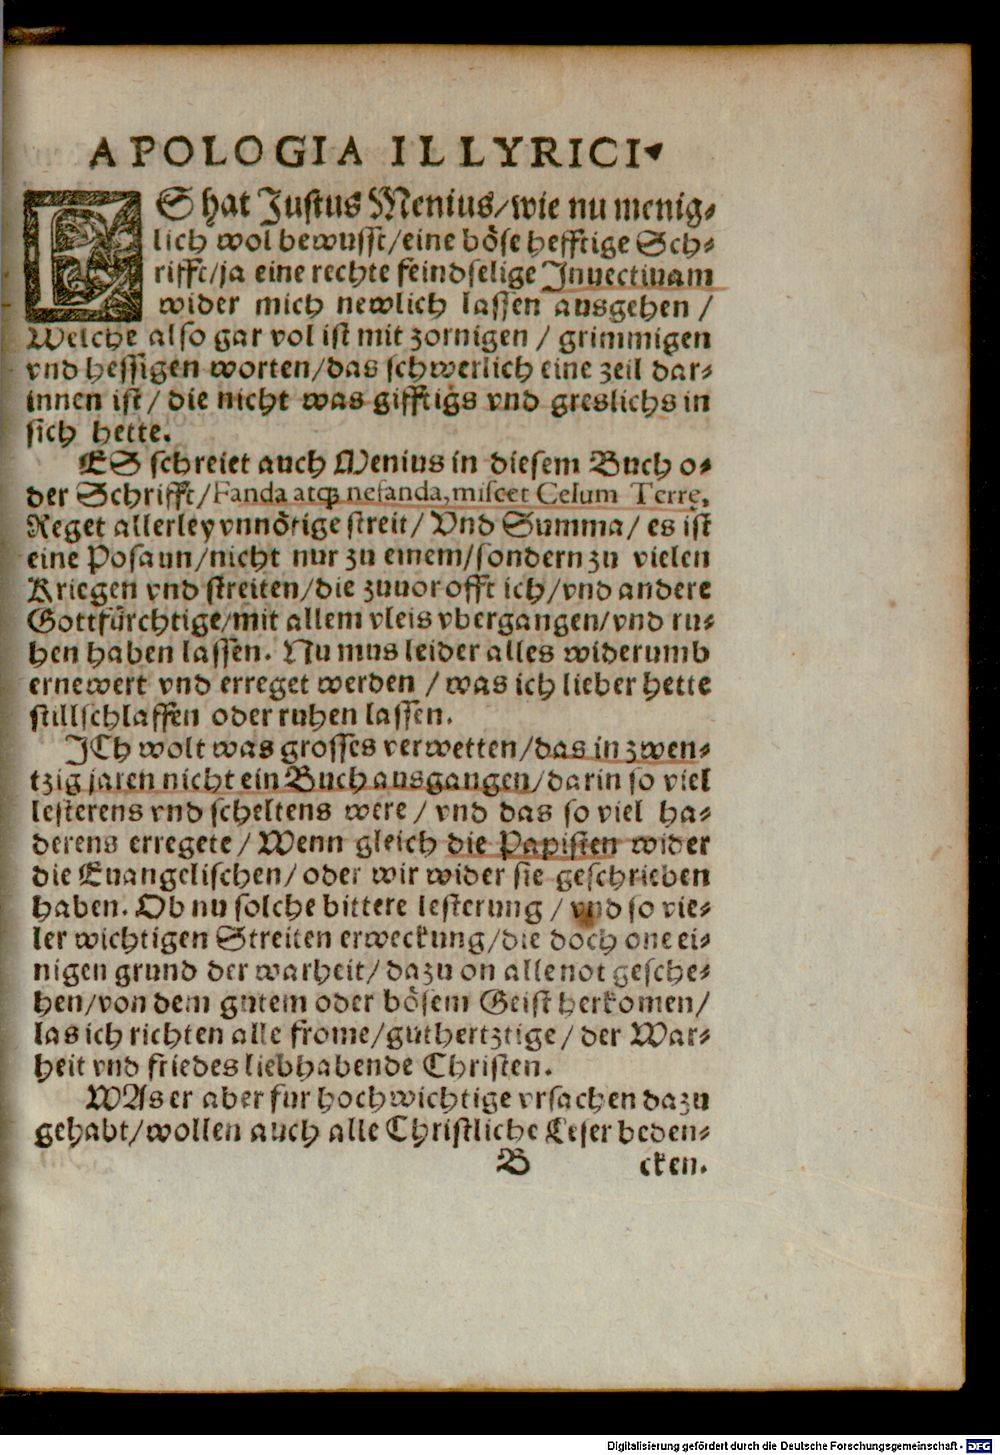 APOLOGIA ILLYRICI.
ES hat Justus Menius/wie nu menig⸗
lich wol bewusst/eine böse hefftige Sch⸗
rifft/ja eine rechte feindselige Inuectiuam
wider mich newlich lassen ausgehen /
Welche also gar vol ist mit zornigen / grimmigen
vnd hessigen worten/das schwerlich eine zeil dar⸗
innen ist/ die nicht was gifftigs vnd greslichs in
sich hette.
ES schreiet auch Menius in diesem Buch o⸗
der Schrifft/Fanda atq; nefanda,miscet Celum Terrę.
Reget allerley vnnötige streit/ Vnd Summa/ es ist
eine Posaun/nicht nur zu einem/sondern zu vielen
Kriegen vnd streiten/die zuuor offt ich/vnd andere
Gottfürchtige/mit allem vleis vbergangen/vnd ru⸗
hen haben lassen. Nu mus leider alles widerumb
ernewert vnd erreget werden /was ich lieber hette
stillschlaffen oder ruhen lassen.
ICh wolt was grosses verwetten/das in zwen⸗
tzig jaren nicht ein Buch ausgangen/darin so viel
lesterens vnd scheltens were / vnd das so viel ha⸗
derens erregete / Wenn gleich die Papisten wider
die Euangelischen/oder wir wider sie geschrieben
haben. Ob nu solche bittere lesterung / vnd so vie⸗
ler wichtigen Streiten erweckung/die doch one ei⸗
nigen grund der warheit/dazu on alle not gesche⸗
hen/von dem gutem oder bösem Geist herkomen/
las ich richten alle frome/guthertztige/ der War⸗
heit vnd friedes liebhabende Christen.
WAs er aber fur hochwichtige vrsachen dazu
gehabt/wollen auch alle Christliche Leser beden⸗
B cken.
Digitalisierung gefördert durch die Deutsche Forschungsgemeinschaft - DFG